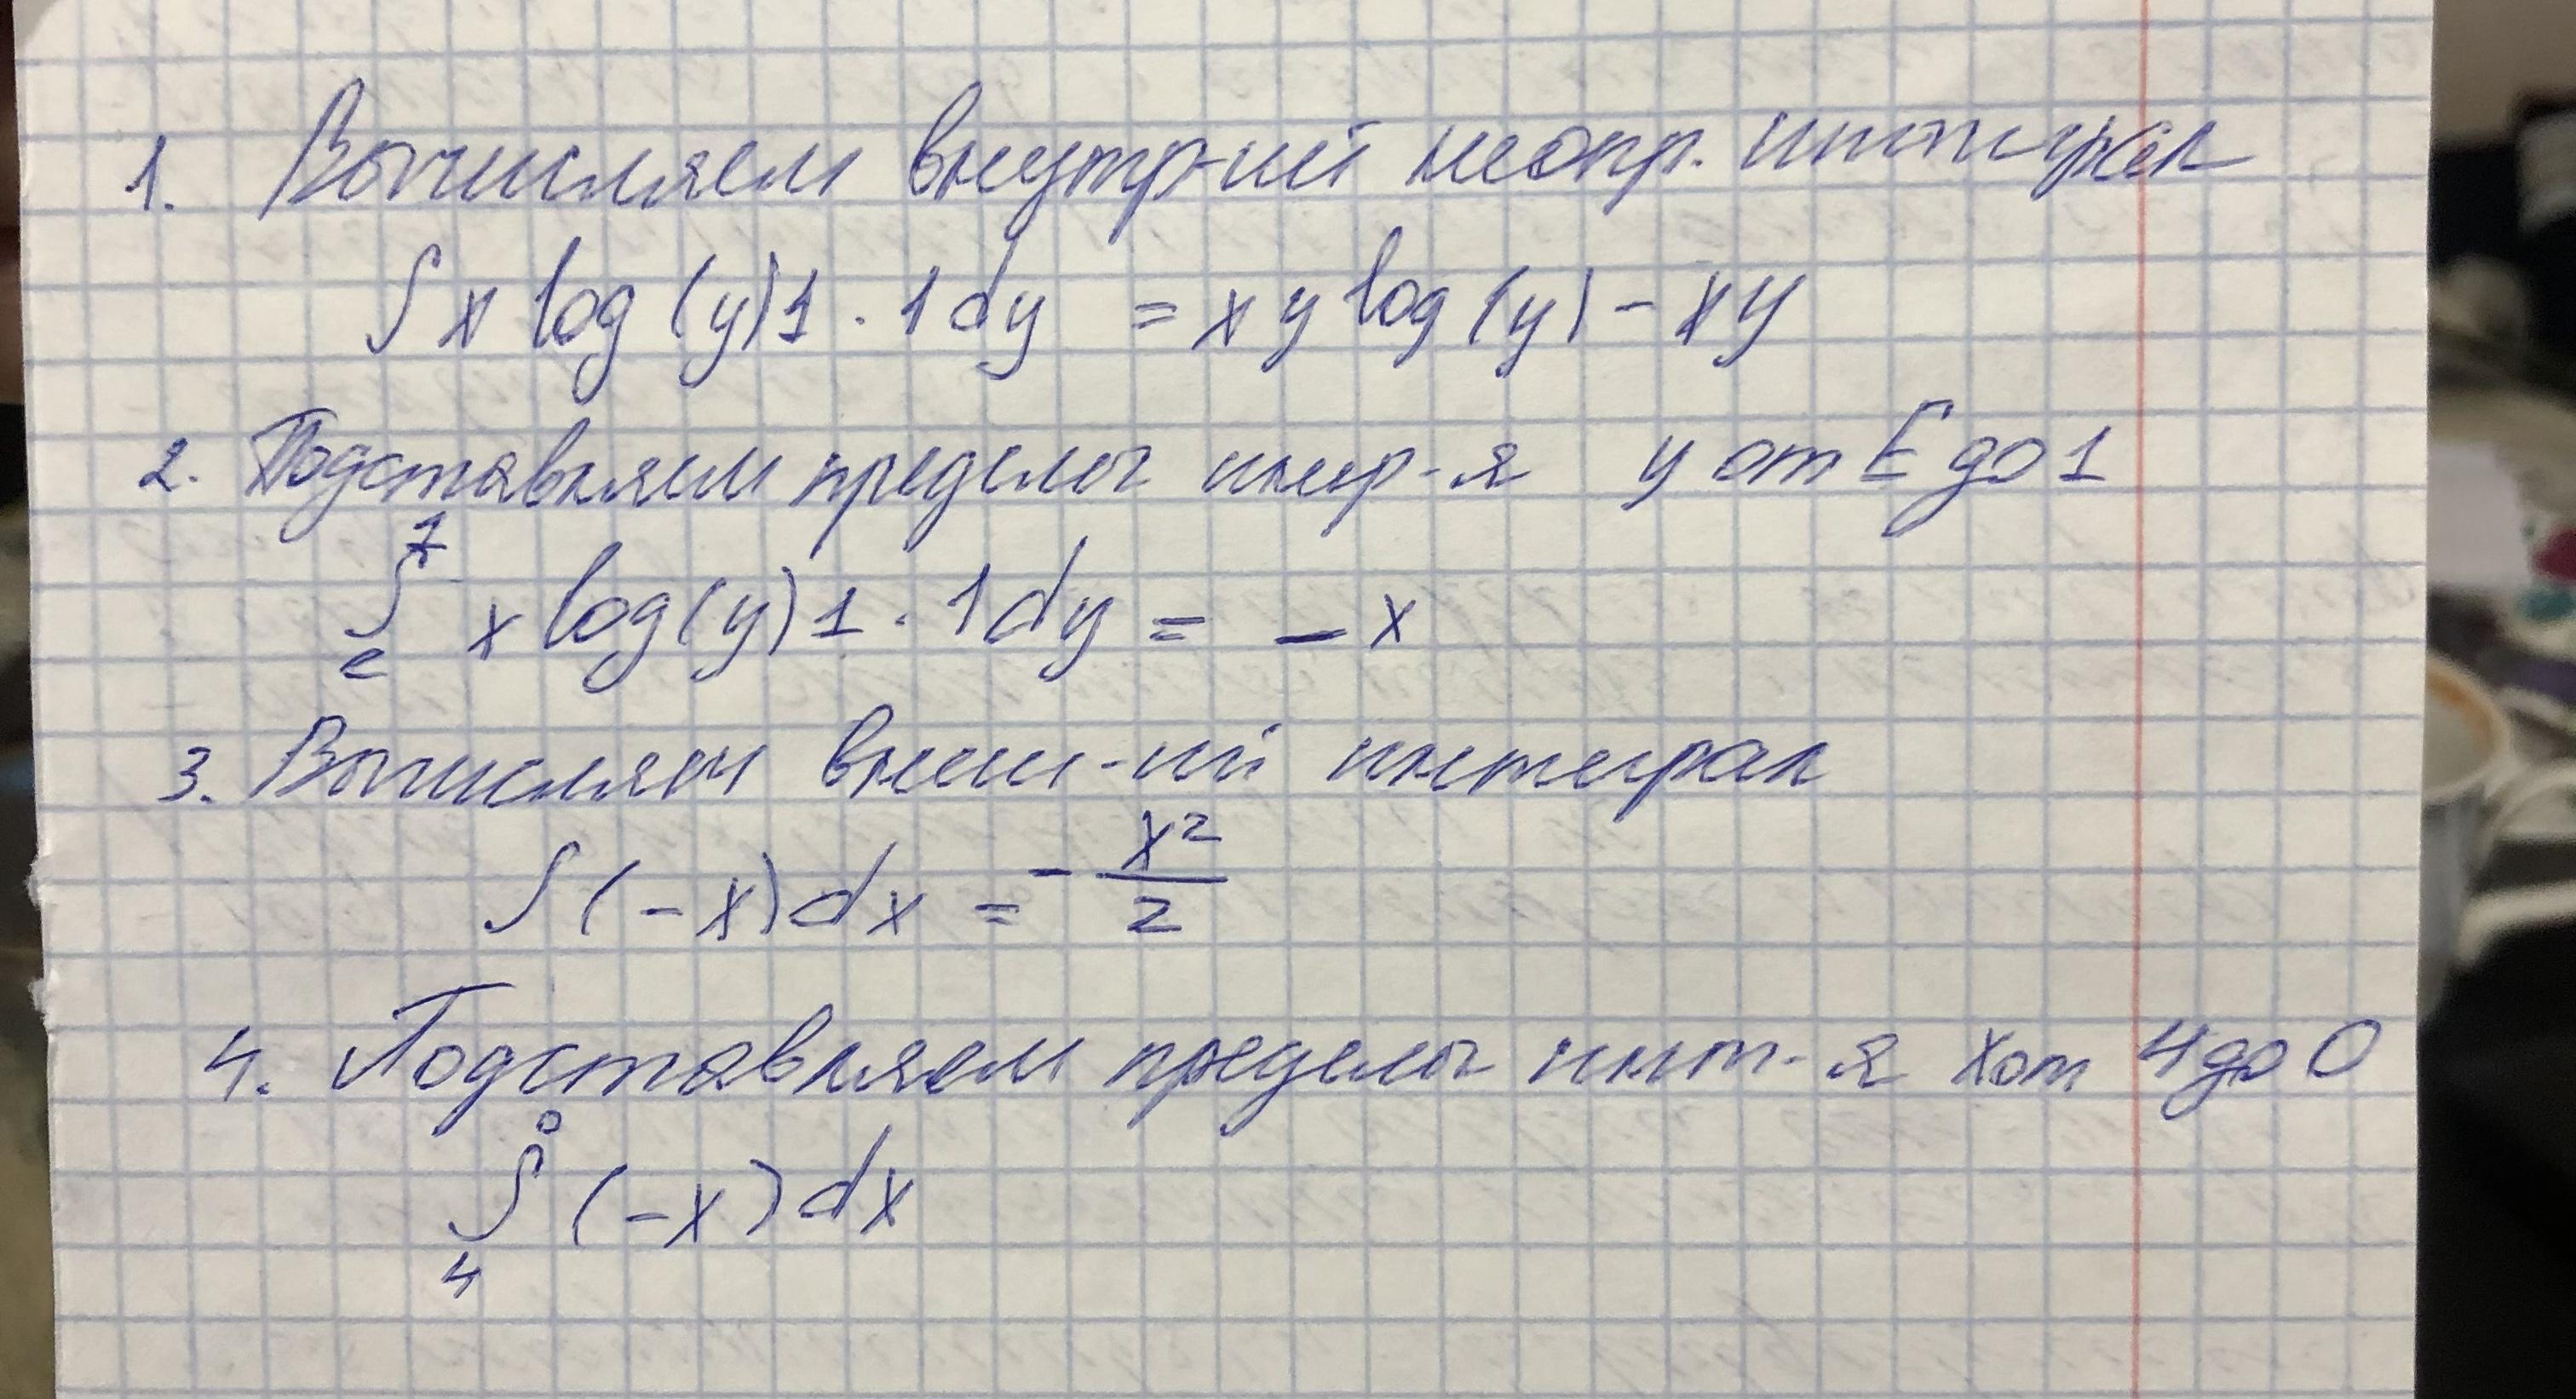 1. Вычисляем внутр-ий неопр. интеграл
∫ x log (y) 1 · 1 dy = x y log (y) - xy
2. Подставляем пределы интр-я y от E до 1
1
∫ x log (y) 1 · 1 dy = - x
e
3. Вычисляем внеш-ий интеграл
∫ (-x) dx = - x²/2
4. Подставляем пределы инт-я x от 4 до 0
0
∫ (-x) dx
4